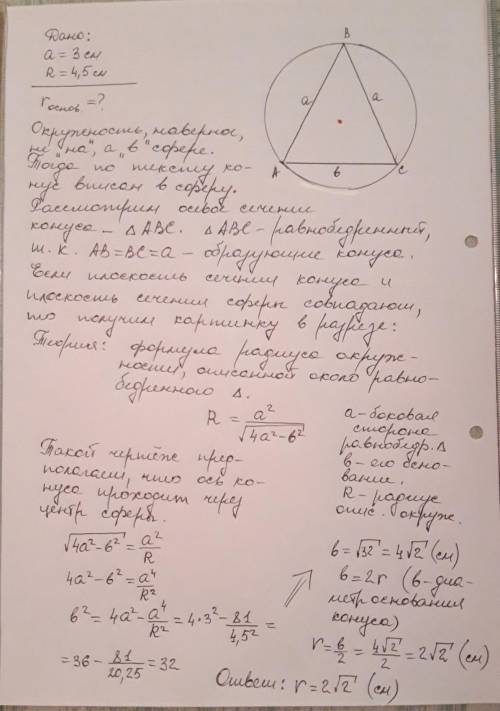 Дано:
a = 3 см
R = 4,5 см
r основ. = ?
B
a
a
A
в
C
Окружность, наверное,
не "на", а "в" сфере.
Тогда по тексту ко-
нус вписан в сферу.
Рассмотрим осевое сечение
конуса - ΔABC. ΔABC - равнобедренный,
т.к. AB=BC=a - образующие конуса.
Если плоскость сечения конуса и
плоскость сечения сферы совпадают,
то получим картинку в разрезе:
Теория: формула радиуса окруж-
ности, описанной около равно-
бедренного Δ.
R = a²/√(4a²-в²)
a - боковая
сторона
равнобедр. Δ
в - его осно-
вание.
R - радиус
опис. окруж.
Такой чертёж пред-
полагает, что ось ко-
нуса проходит через
центр сферы.
√(4a²-в²) = a²/R
4a²-в² = a⁴/R²
в² = 4a² - a⁴/R² = 4·3² - 81/4,5² =
= 36 - 81/20,25 = 32
в = √32 = 4√2 (см)
в = 2r (в - диа-
метр основания
конуса)
r = в/2 = 4√2/2 = 2√2 (см)
Ответ: r = 2√2 (см)